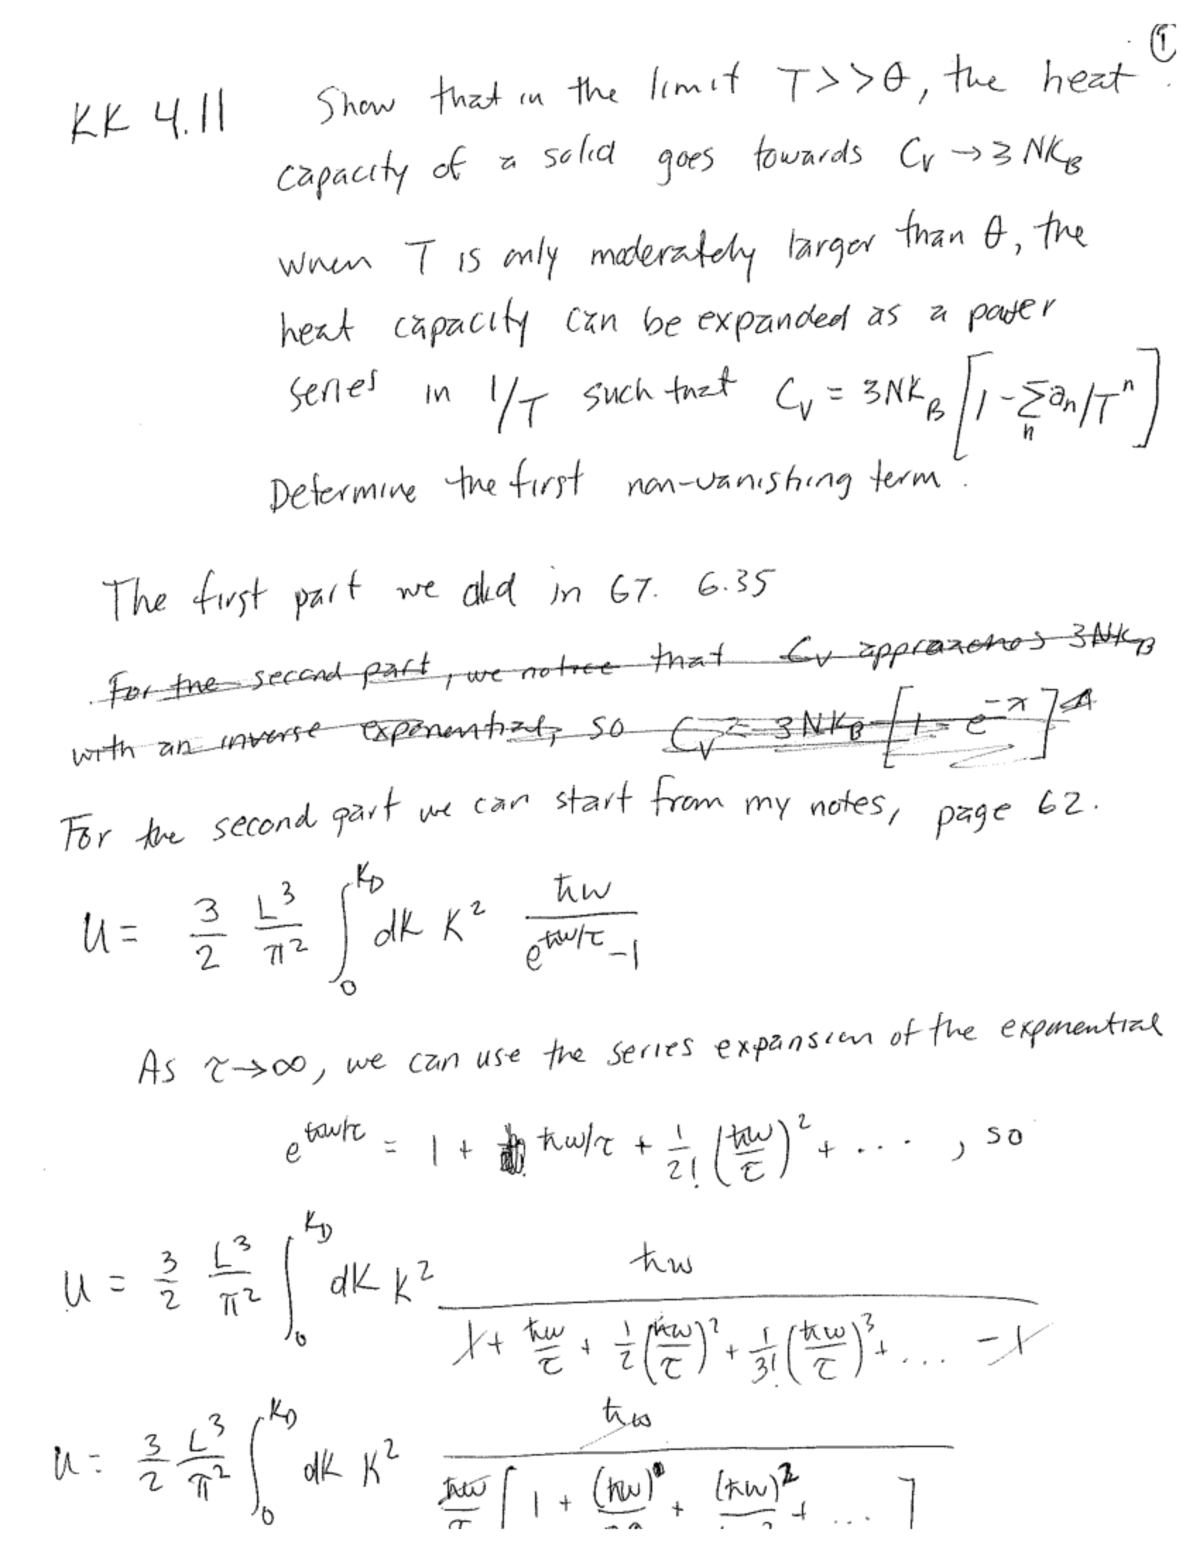 ①
KK 4.11 Show that in the limit T>>θ, the heat
capacity of a solid goes towards C_V → 3 NK_B
when T is only moderately larger than θ, the
heat capacity can be expanded as a power
series in 1/T such that C_V = 3NK_B [1 - Σ_n a_n/T^n]
Determine the first non-vanishing term.
The first part we did in 67. 6.35
For the second part, we notice that C_V approaches 3NK_B
with an inverse exponential, so C_V = 3NK_B [1 - e^{-x}]
For the second part we can start from my notes, page 62.
U = 3/2 L^3/π^2 ∫_0^{K_D} dK K^2 ħω/(e^{ħω/τ} - 1)
As τ→∞, we can use the series expansion of the exponential
e^{ħω/τ} = 1 + ħω/τ + 1/2! (ħω/τ)^2 + ... , so
U = 3/2 L^3/π^2 ∫_0^{K_D} dK K^2 ħω/(1 + ħω/τ + 1/2 (ħω/τ)^2 + 1/3! (ħω/τ)^3 + ... - 1)
U = 3/2 L^3/π^2 ∫_0^{K_D} dK K^2 ħω/(ħω/τ [1 + (ħω) + (ħω)^2 + ... ]